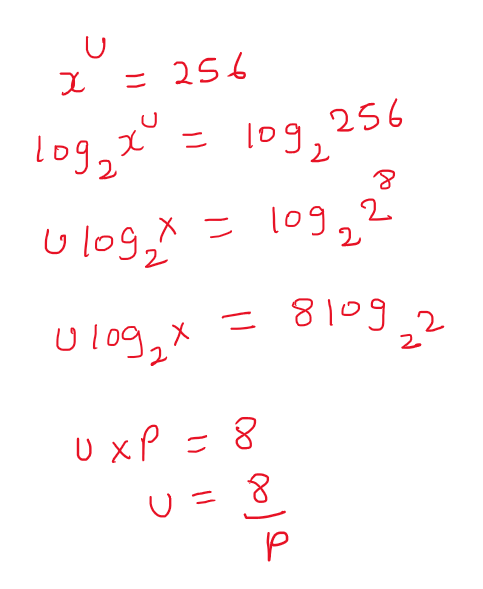 x^U = 256
log₂ x^U = log₂ 256
U log₂ x = log₂ 2^8
U log₂ x = 8 log₂ 2
U x P = 8
U = 8/P